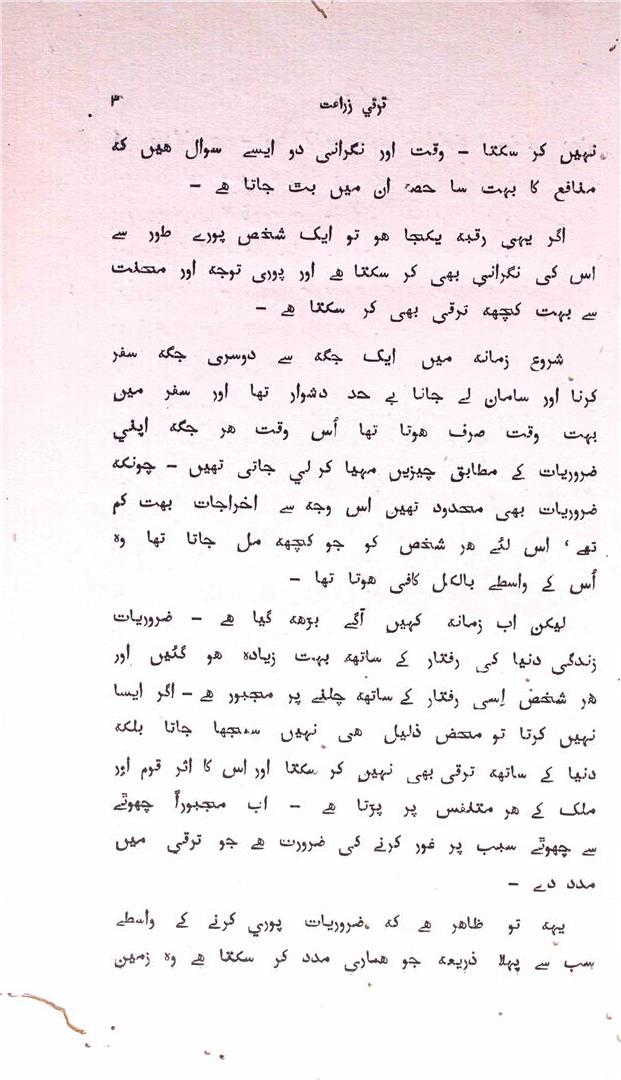 ترقي زراعت ۳
نہیں کر سکتا - وقت اور نگرانی دو ایسے سوال هیں کہ
منافع کا بہت سا حصہ ان میں بت جاتا ہے -
اگر یہی رقبہ یکجا هو تو ایک شخص پورے طور سے
اس کی نگرانی بھی کر سکتا ہے اور پوری توجہ اور محنت
سے بہت کچھہ ترقی بھی کر سکتا ہے -
شروع زمانہ میں ایک جگہ سے دوسری جگہ سفر
کرنا اور سامان لے جانا بے حد دشوار تھا اور سفر میں
بہت وقت صرف هوتا تھا اُس وقت هر جگہ اپنی
ضروریات کے مطابق چیزیں مہیا کر لي جاتی تھیں - چونکہ
ضروریات بھی محدود تھیں اس وجہ سے اخراجات بہت کم
تھے ، اس لئے هر شخص کو جو کچھہ مل جاتا تھا وہ
اُس کے واسطے بالکل کافی هوتا تھا -
لیکن اب زمانہ کہیں آگے بڑھہ گیا ہے - ضروریات
زندگی دنیا کی رفتار کے ساتھہ بہت زیادہ هو گئیں اور
هر شخص اِسی رفتار کے ساتھہ چلنے پر مجبور ہے - اگر ایسا
نہیں کرتا تو محض ذلیل هی نہیں سمجھا جاتا بلکہ
دنیا کے ساتھہ ترقی بھی نہیں کر سکتا اور اس کا اثر قوم اور
ملک کے هر متنفس پر پڑتا ہے - اب مجبوراً چھوٹے
سے چھوٹے سبب پر غور کرنے کی ضرورت ہے جو ترقی میں
مدد دے -
یہہ تو ظاهر ہے کہ ضروریات پوري کرنے کے واسطے
سب سے پہلا ذریعہ جو هماری مدد کر سکتا ہے وہ زمین